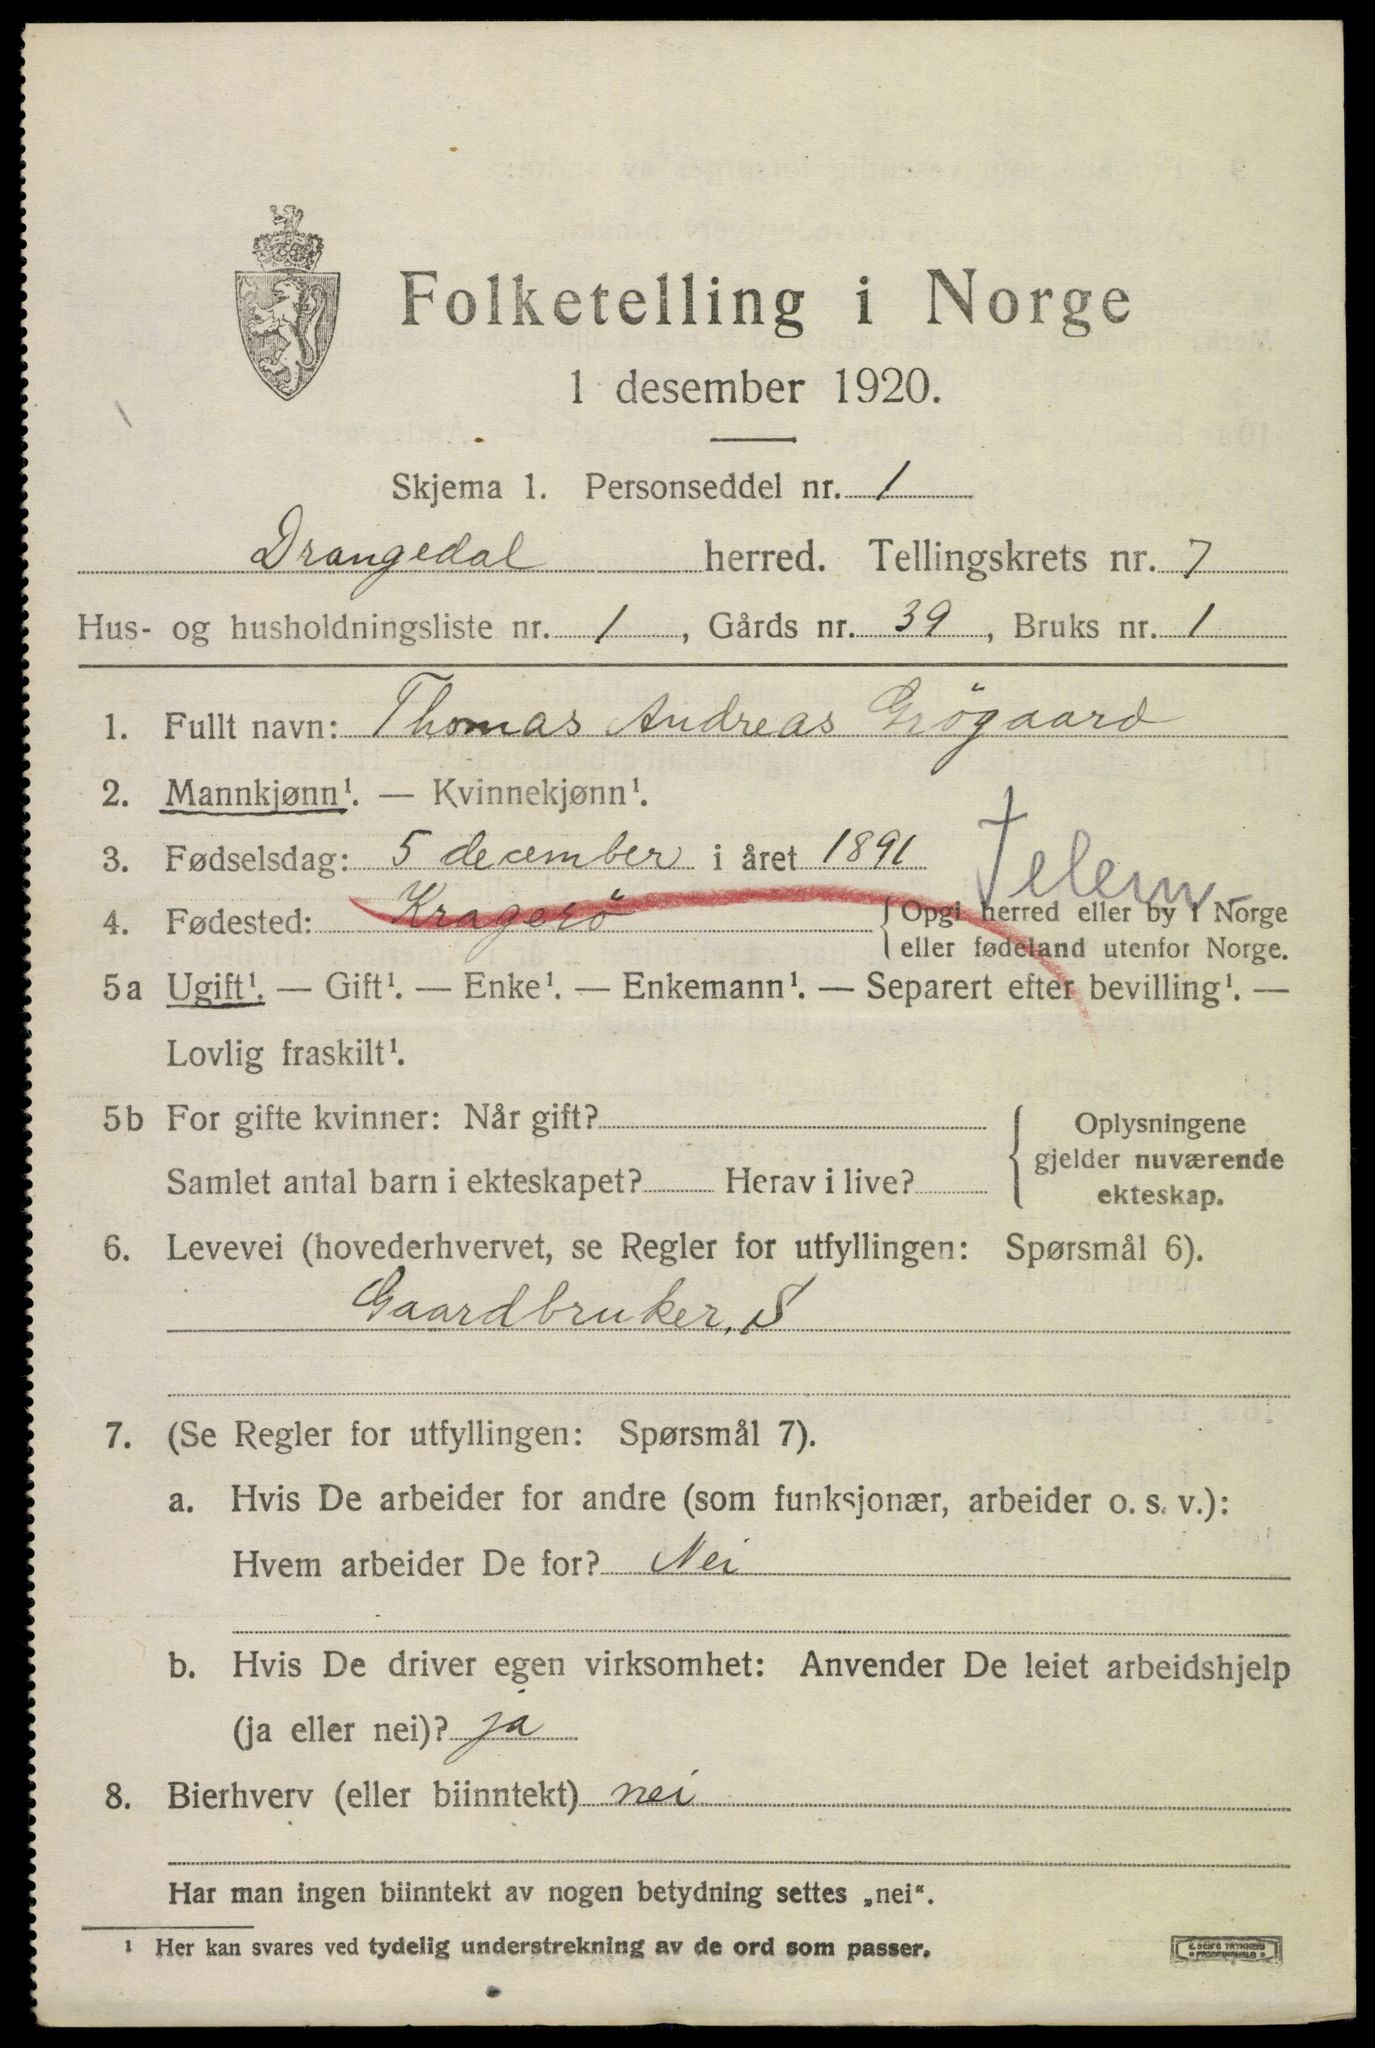 Folketelling i Norge
1 desember 1920.
Skjema 1. Personseddel nr. 1
Drangedal herred. Tellingskrets nr. 7
Hus- og husholdningsliste nr. 1, Gårds nr. 39, Bruks nr. 1
1. Fullt navn: Thomas Andreas Grögaard
2. Mannkjønn¹. — Kvinnekjønn¹.
3. Fødselsdag: 5 december i året 1891
Telem
4. Fødested: Kragerö { Opgi herred eller by i Norge
eller fødeland utenfor Norge.
5a Ugift¹. — Gift¹. — Enke¹. — Enkemann¹. — Separert efter bevilling¹. —
Lovlig fraskilt¹.
5b For gifte kvinner: Når gift?
Samlet antal barn i ekteskapet? Herav i live?
Oplysningene
gjelder nuværende
ekteskap.
6. Levevei (hovederhvervet, se Regler for utfyllingen: Spørsmål 6).
Gaardbruker, S
7. (Se Regler for utfyllingen: Spørsmål 7).
a. Hvis De arbeider for andre (som funksjonær, arbeider o. s. v.):
Hvem arbeider De for? Nei
b. Hvis De driver egen virksomhet: Anvender De leiet arbeidshjelp
(ja eller nei)? ja
8. Bierhverv (eller biinntekt) nei
Har man ingen biinntekt av nogen betydning settes „nei“.
¹ Her kan svares ved tydelig understrekning av de ord som passer.